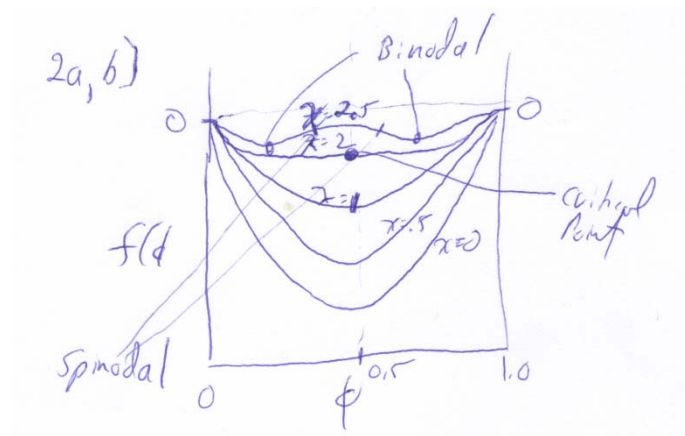 2a, b)
Binodal
0
0
χ=2.5
χ=2
χ=1
χ=.5
χ=0
Critical
Point
f(φ
Spinodal
0
0.5
1.0
φ